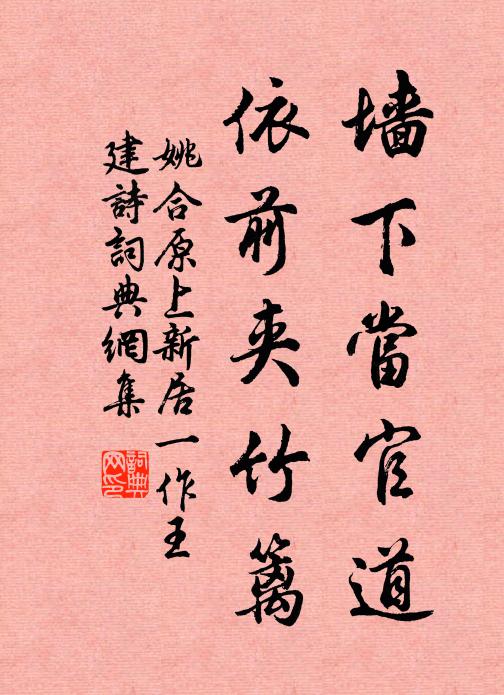 墙下當官道
依前夹竹篱
姚合原上新居一作王
建詩詞典網集
詞典
网印